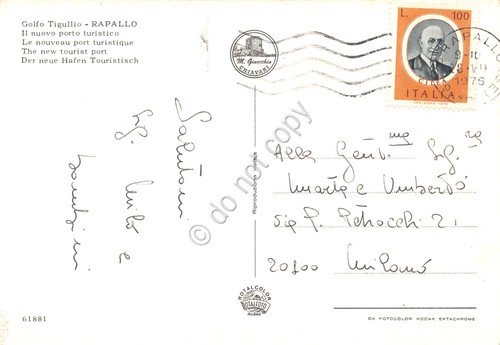 Golfo Tigullio - RAPALLO
Il nuovo porto turistico
Le nouveau port turistique
The new tourist port
Der neue Hafen Touristisch
M. Genocchio
CHIAVARI
L. 100
ITALIA
RAPALLO
1976
Saluti
Sig.
e
do not copy
Riproduzione vietata
Alla Gent.ma Sig.ra
e Umberto
via P. Petrocchi 21
20100 Milano
ROTALCOLOR
ROTALFOTO
MILANO
61881
DA FOTOCOLOR KODAK EKTACHROME